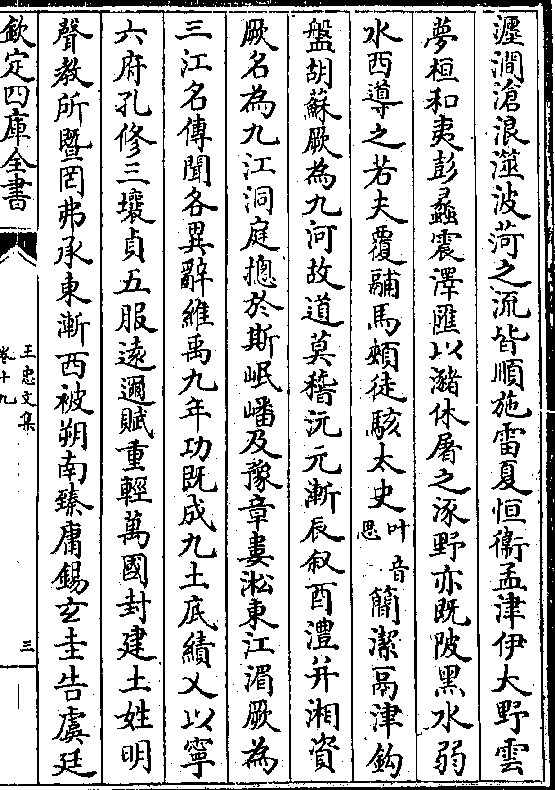 瀍澗滄浪滎波菏之流皆順施雷夏恒衛孟津伊大野雲
夢桓和夷彭蠡震澤匯以瀦休屠之涿野亦既陂黑水弱
水西導之若夫覆鬴馬頰徒駭太史叶音思簡潔鬲津鈎
盤胡蘇厥為九河故道莫稽沅元漸辰叙酉澧并湘資
厥名為九江洞庭摠於斯岷嶓及豫章婁淞東江湄厥為
三江名傳聞各異辭維禹九年功既成九土底績乂以寧
六府孔修三壤貞五服逺邇賦重輕萬國封建土姓明
聲教所暨罔弗承東漸西被朔南臻庸錫玄圭告虞廷
欽定四庫全書
王忠文集
卷十九
三